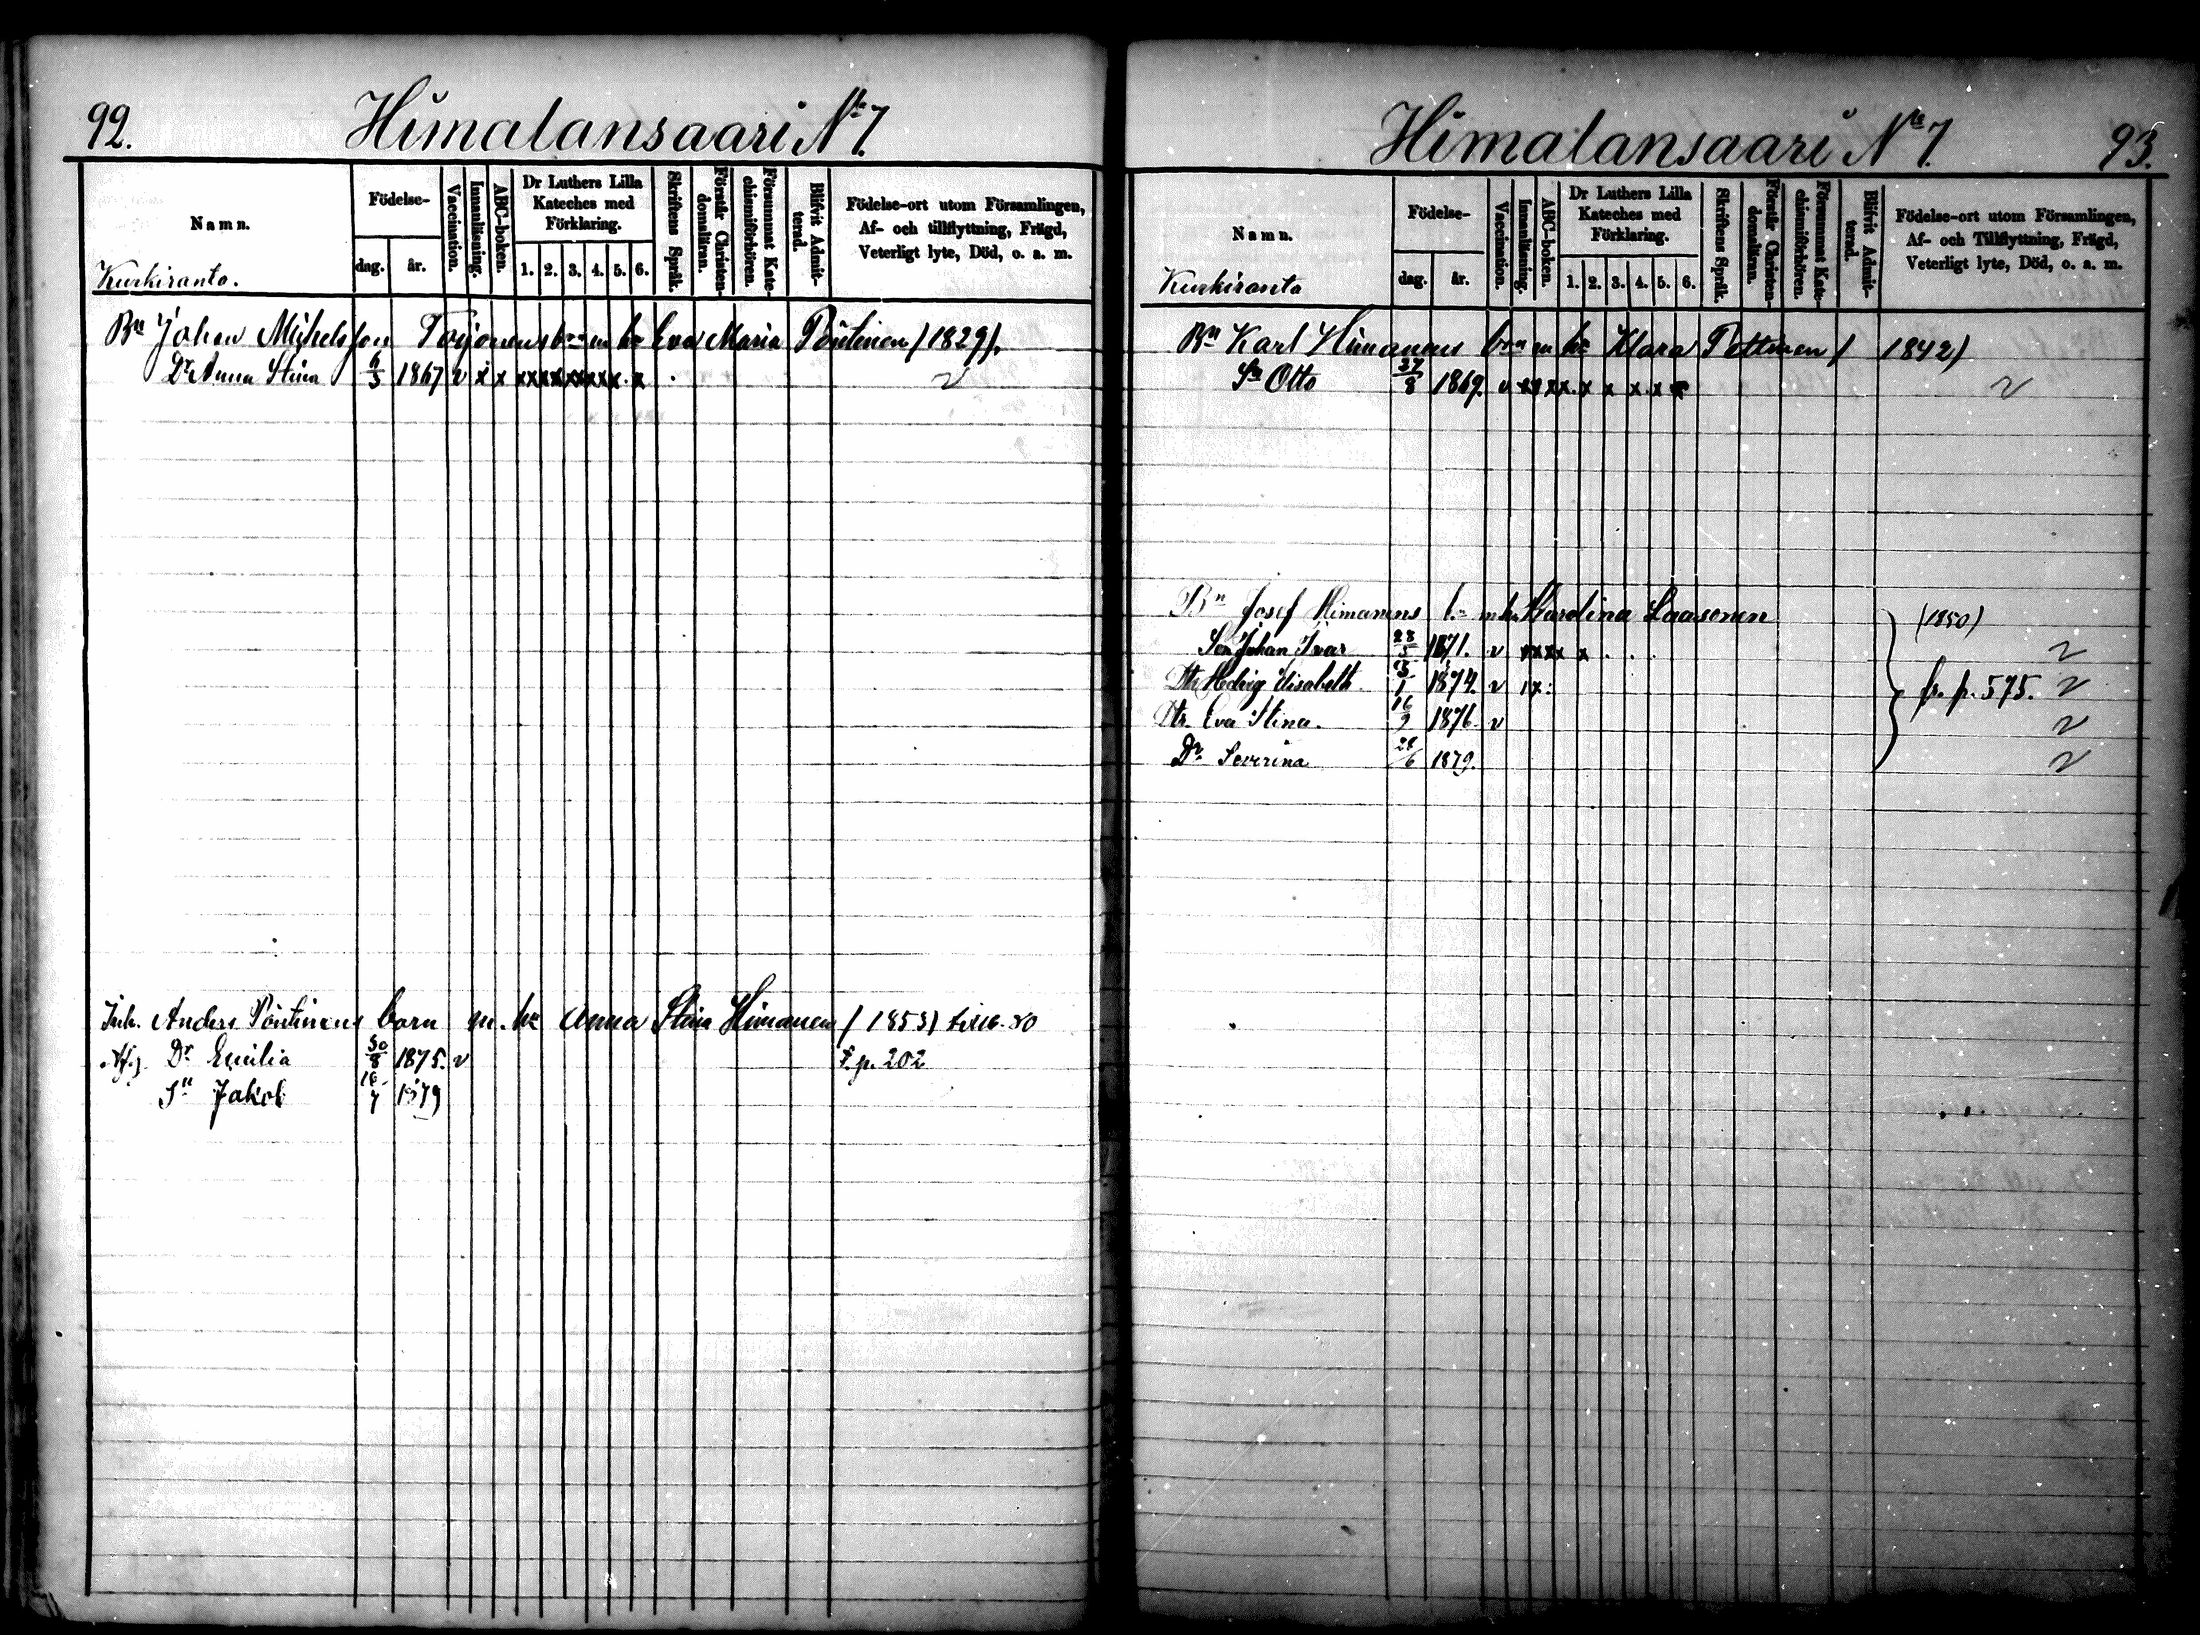 92. Himalansaari No 7.
Namn.
Födelse-
dag. år.
Vaccination.
Innanläsning.
ABC-boken.
Dr Luthers Lilla
Kateches med
Förklaring.
1. 2. 3. 4. 5. 6.
Skriftens Språk.
Förstår Christen-
domsläran.
Försummat Kate-
chismiförhören.
Blifvit Admit-
terad.
Födelse-ort utom Församlingen,
Af- och tillflyttning, Frägd,
Veterligt lyte, Död, o. a. m.
Kurkiranta.
Bn Johan Michelsson Toijonens bn m hu Eva Maria Pöntinen (1829).
Dr Anna Stina 6/3 1867 v x x xxxxxxxx. x .
Inh. Anders Pöntinens barn m. hu Anna Stina Himanen (1853)
Dr Emilia 30/8 1875. v F. p. 202
Sn Jakob 18/7 1879
Himalansaari No 7. 93.
Namn.
Födelse-
dag. år.
Vaccination.
Innanläsning.
ABC-boken.
Dr Luthers Lilla
Kateches med
Förklaring.
1. 2. 3. 4. 5. 6.
Skriftens Språk.
Förstår Christen-
domsläran.
Försummat Kate-
chismiförhören.
Blifvit Admit-
terad.
Födelse-ort utom Församlingen,
Af- och Tillflyttning, Frägd,
Veterligt lyte, Död, o. a. m.
Kurkiranta
Bn Karl Himanens bn m hu Klara Pettinen (1842)
Sn Otto 27/8 1869. v xx xx. x x x. x x
Bn Josef Himanens bn m hu Karolina Laasonen (1850)
Son Johan Ivar 28/5 1871. v xxxx x . . .
Dtr Hedvig Elisabeth 13/1 1874. v 1x. fr. p. 575.
Dtr Eva Stina. 16/9 1876. v
Dr Severina 28/6 1879.